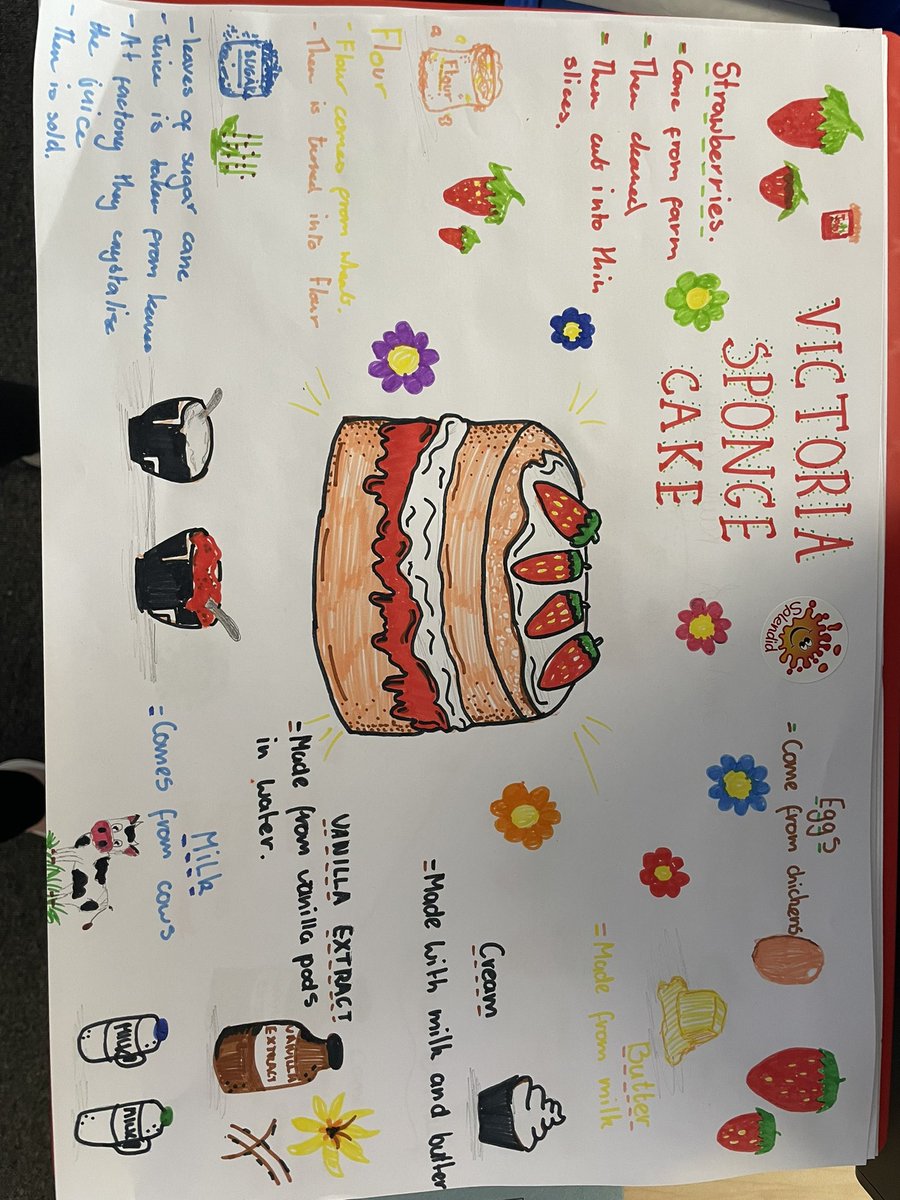 VICTORIA
SPONGE
CAKE
Splendid
Strawberries.
- Come from farm
- Then cleaned
- Then cuts into thin
slices.
Flour
Flour
- Flour comes from wheats.
- Then is turned into flour
- leaves of sugar cane
- Juice is taken from leaves
- At factory they crystalize
the juice
- Then is sold.
Eggs
= Come from chickens
Butter
= Made from milk
Cream
= Made with milk and butter
VANILLA EXTRACT
= Made from vanilla pods
in water.
VANILLA
EXTRACT
Milk
= Comes from cows
MILK
MILK